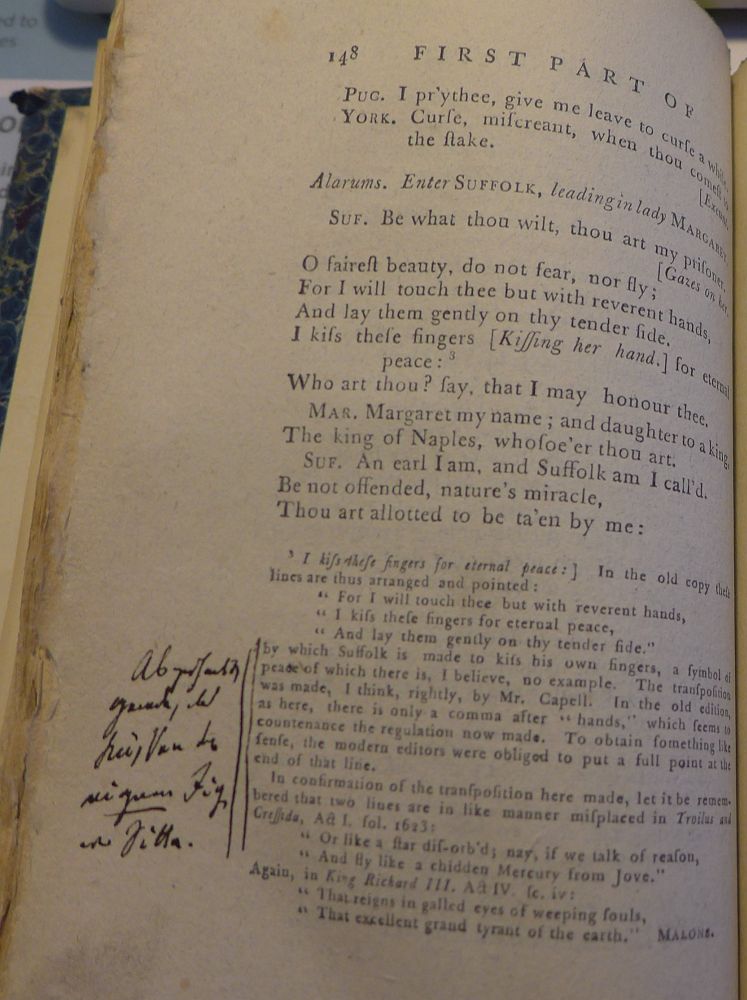 148 FIRST PART OF
PUC. I pr'ythee, give me leave to curſe a while.
YORK. Curſe, miſcreant, when thou comeſt to
the ſtake.
[Exeunt.
Alarums. Enter SUFFOLK, leading in lady MARGARET.
SUF. Be what thou wilt, thou art my priſoner.
[Gazes on her.
O faireſt beauty, do not fear, nor fly;
For I will touch thee but with reverent hands,
And lay them gently on thy tender ſide.
I kiſs theſe fingers [Kiſſing her hand.] for eternal
peace: ³
Who art thou? ſay, that I may honour thee.
MAR. Margaret my name; and daughter to a king,
The king of Naples, whoſoe'er thou art.
SUF. An earl I am, and Suffolk am I call'd.
Be not offended, nature's miracle,
Thou art allotted to be ta'en by me:
³ I kiſs theſe fingers for eternal peace:] In the old copy theſe
lines are thus arranged and pointed:
“ For I will touch thee but with reverent hands,
“ I kiſs theſe fingers for eternal peace,
“ And lay them gently on thy tender ſide.”
by which Suffolk is made to kiſs his own fingers, a ſymbol of
peace of which there is, I believe, no example. The tranſpoſition
was made, I think, rightly, by Mr. Capell. In the old edition,
as here, there is only a comma after “ hands,” which ſeems to
countenance the regulation now made. To obtain ſomething like
ſenſe, the modern editors were obliged to put a full point at the
end of that line.
In confirmation of the tranſpoſition here made, let it be remem-
bered that two lines are in like manner miſplaced in Troilus and
Creſſida, Act I. fol. 1623:
“ Or like a ſtar diſ-orb'd; nay, if we talk of reaſon,
“ And fly like a chidden Mercury from Jove.”
Again, in King Richard III. Act IV. ſc. iv:
“ That reigns in galled eyes of weeping ſouls,
“ That excellent grand tyrant of the earth.” MALONE.